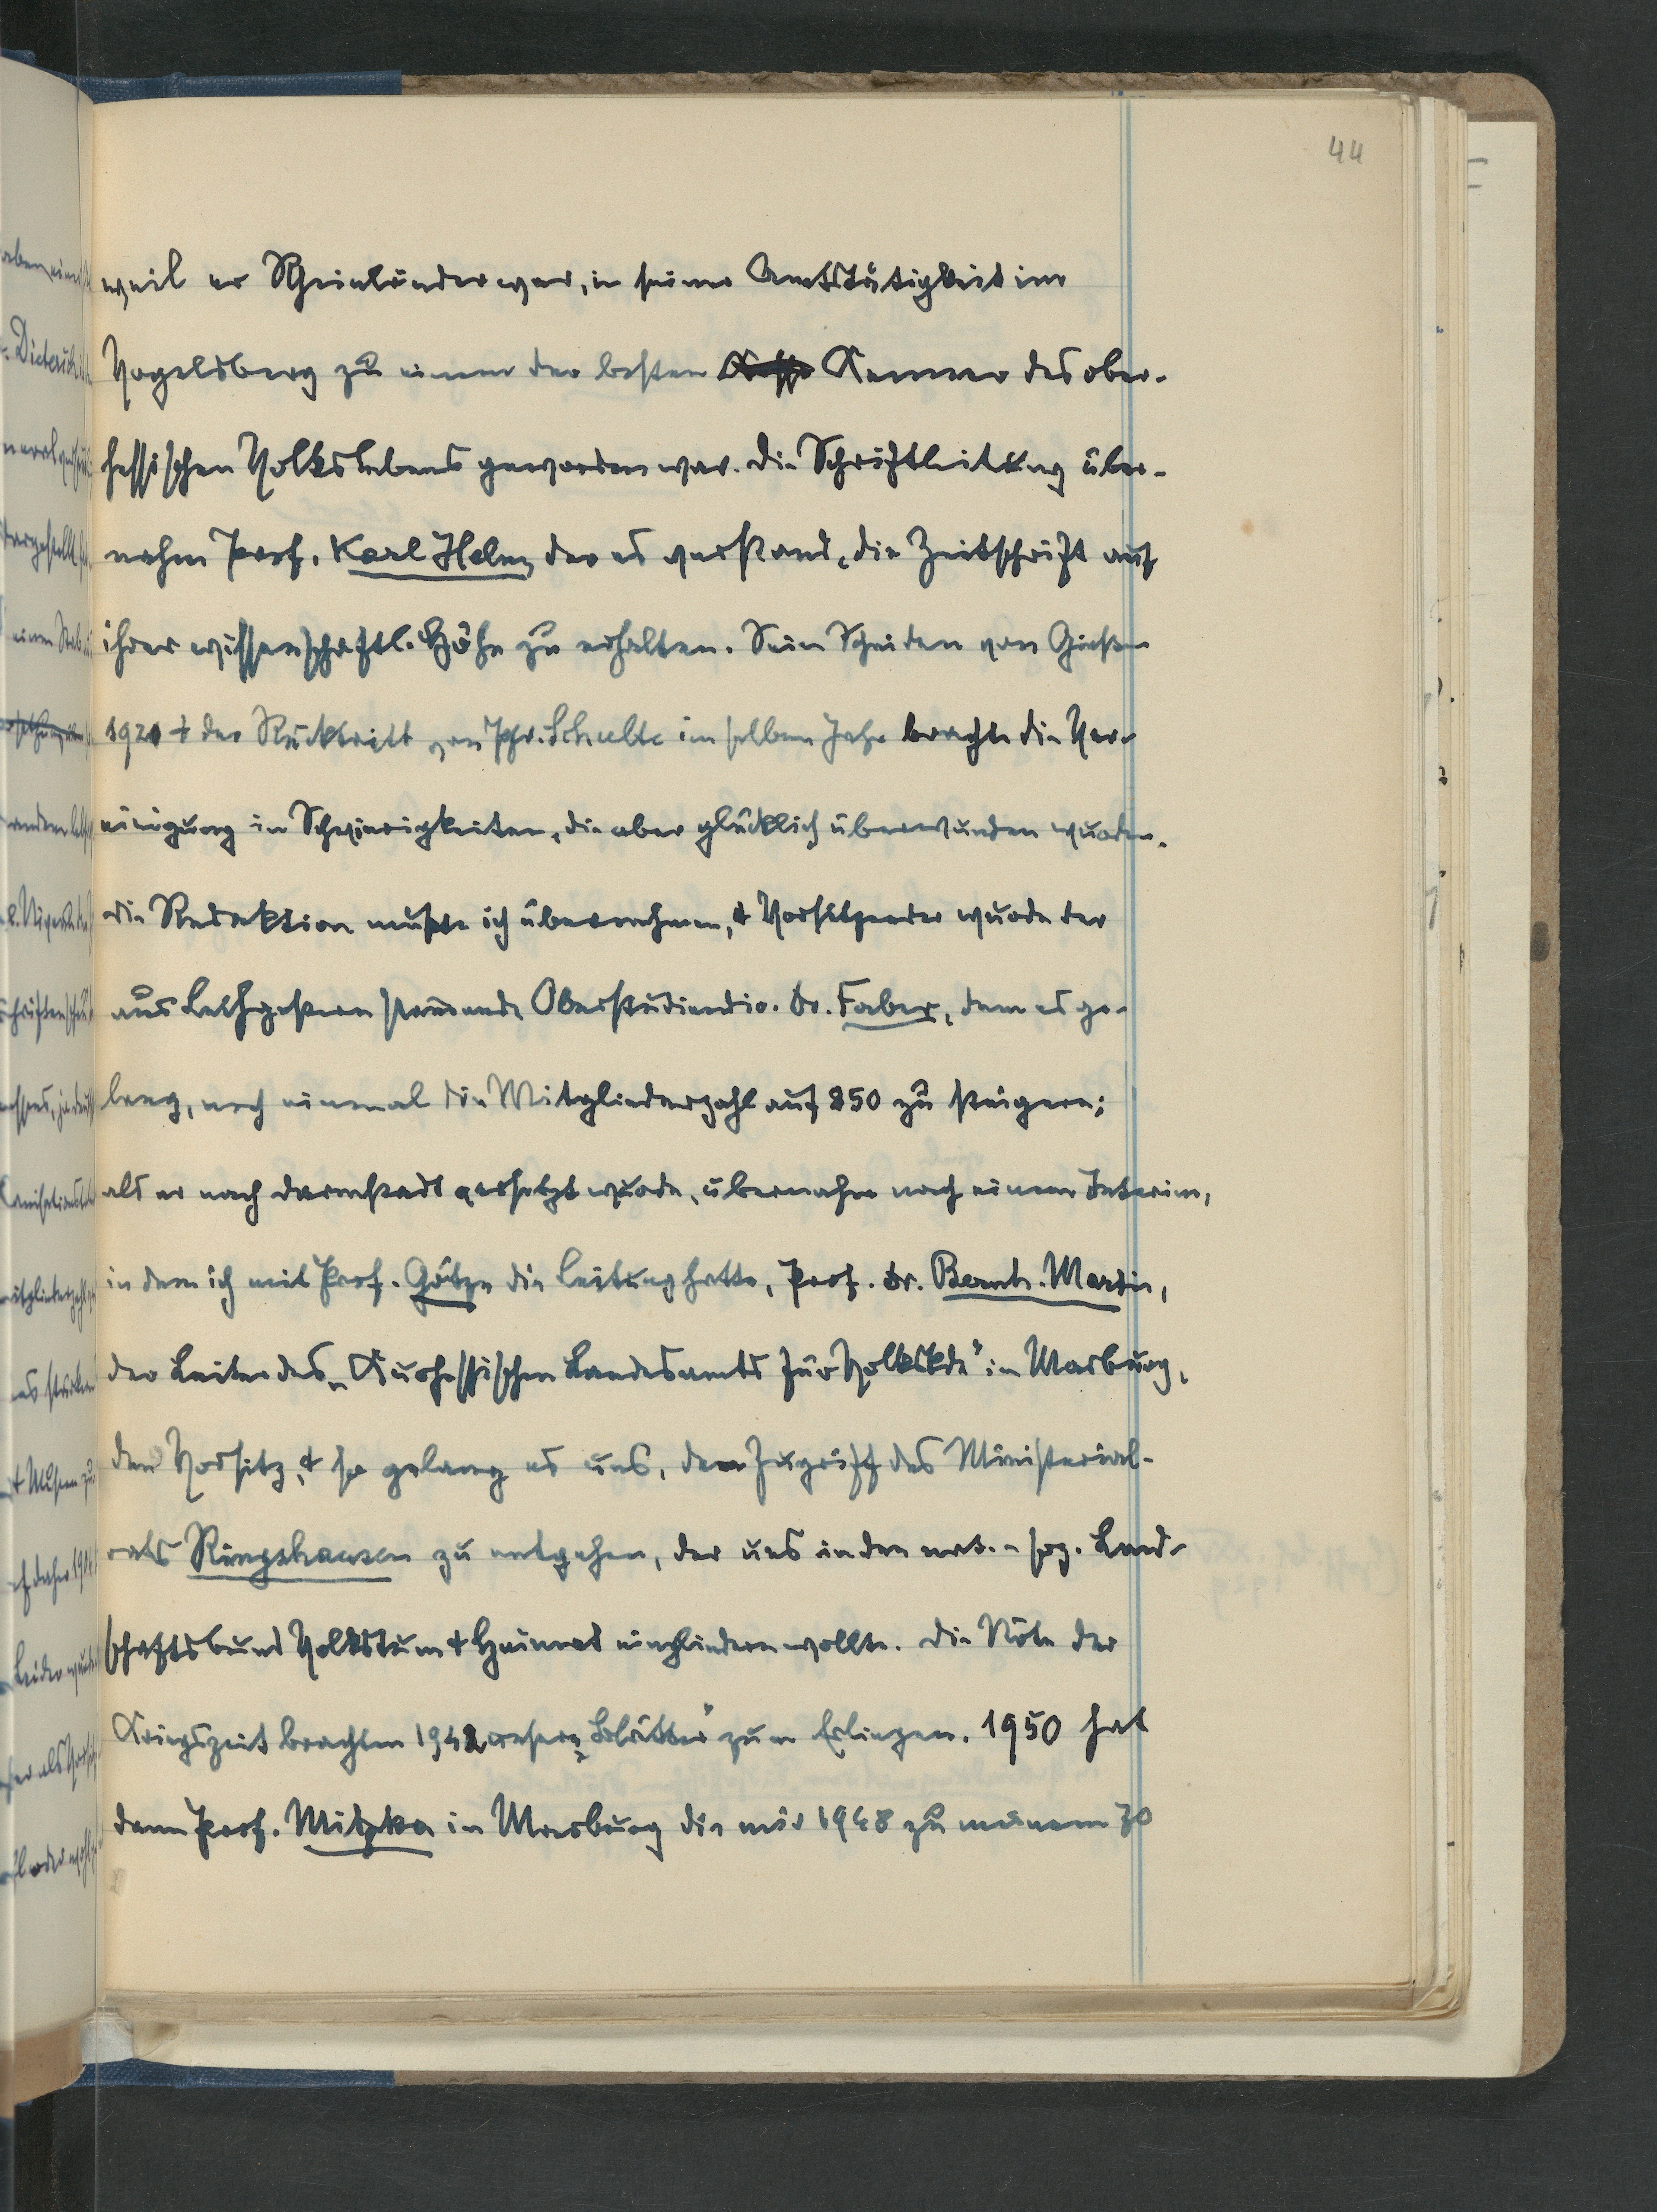 44
weil er Rheinländer war, in seiner Amtstätigkeit im
Vogelsberg zu einem der besten Kenner des ober-
hessischen Volkslebens geworden war. Die Schriftleitung über-
nahm Prof. Karl Helm, der es verstand, die Zeitschrift auf
ihrer wissenschaftl. Höhe zu erhalten. Sein Scheiden von Gießen
1921 + der Rücktritt von Pfr. Schulte im selben Jahr brachte die Ver-
einigung in Schwierigkeiten, die aber glücklich überwunden wurden.
Die Redaktion mußte ich übernehmen, + Vorsitzender wurde der
aus Leihgestern stammende Oberstudiendir. Dr. Faber, dem es ge-
lang, noch einmal die Mitgliederzahl auf 850 zu steigern;
als er nach Darmstadt versetzt wurde, übernahm nach einem Interim,
in dem ich mit Prof. Götze die Leitung hatte, Prof. Dr. Bernh. Martin,
der Leiter des „Kurhessischen Landesamts für Volkskde" in Marburg,
den Vorsitz, + so gelang es uns, dem Zugriff des Ministerial-
rats Ringshausen zu entgehen, der uns in den nat.-soz. Land-
schaftsbund Volkstum + Heimat eingliedern wollte. Die Nöte der
Kriegszeit brachten 1942 unsere „Blätter" zum Erliegen. 1950 hat
dann Prof. Mitzka in Marburg die mir 1948 zu meinem 70